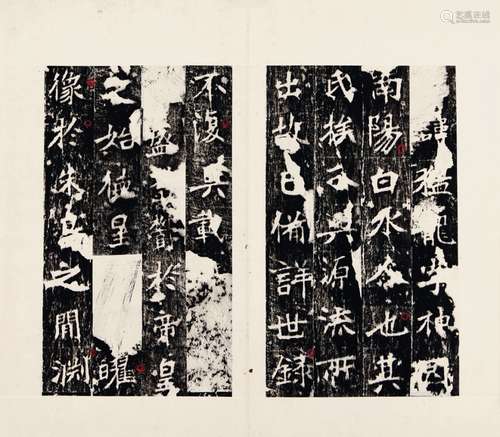 諱猛龍字神冏
南陽白水人也其
氏族分興源流所
出故已備詳世錄
不復具載
盛蓄於帝皇
之始德星曜
像於朱鳥之間淵